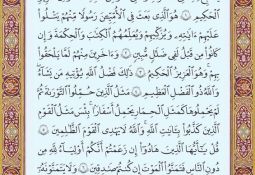 ٱلْحَكِيمِ ۝١ هُوَ ٱلَّذِى بَعَثَ فِى ٱلْأُمِّيِّـۧنَ رَسُولًا مِّنْهُمْ يَتْلُوا۟
عَلَيْهِمْ ءَايَـٰتِهِۦ وَيُزَكِّيهِمْ وَيُعَلِّمُهُمُ ٱلْكِتَـٰبَ وَٱلْحِكْمَةَ وَإِن
كَانُوا۟ مِن قَبْلُ لَفِى ضَلَـٰلٍ مُّبِينٍ ۝٢ وَءَاخَرِينَ مِنْهُمْ لَمَّا يَلْحَقُوا۟
بِهِمْ وَهُوَ ٱلْعَزِيزُ ٱلْحَكِيمُ ۝٣ ذَٰلِكَ فَضْلُ ٱللَّهِ يُؤْتِيهِ مَن يَشَآءُ
وَٱللَّهُ ذُو ٱلْفَضْلِ ٱلْعَظِيمِ ۝٤ مَثَلُ ٱلَّذِينَ حُمِّلُوا۟ ٱلتَّوْرَىٰةَ ثُمَّ
لَمْ يَحْمِلُوهَا كَمَثَلِ ٱلْحِمَارِ يَحْمِلُ أَسْفَارًۢا بِئْسَ مَثَلُ ٱلْقَوْمِ
ٱلَّذِينَ كَذَّبُوا۟ بِـَٔايَـٰتِ ٱللَّهِ وَٱللَّهُ لَا يَهْدِى ٱلْقَوْمَ ٱلظَّـٰلِمِينَ ۝٥
قُلْ يَـٰٓأَيُّهَا ٱلَّذِينَ هَادُوٓا۟ إِن زَعَمْتُمْ أَنَّكُمْ أَوْلِيَآءُ لِلَّهِ مِن
دُونِ ٱلنَّاسِ فَتَمَنَّوُا۟ ٱلْمَوْتَ إِن كُنتُمْ صَـٰدِقِينَ ۝٦ وَلَا يَتَمَنَّوْنَهُۥٓ